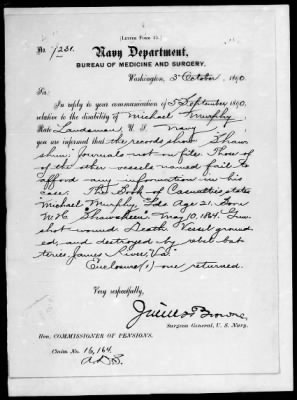 (LETTER FORM 15.)
No. 1231.
Navy Department,
BUREAU OF MEDICINE AND SURGERY,
Washington, 3d October, 1890.
Sir:
In reply to your communication of 5 September 1890,
relative to the disability of Michael Murphy
Rate Landsman, U. S. Navy,
you are informed that the records show "Shaw-
shun" Journals not on file. Those of
of the other vessels named fail to
afford any information in his
case. The Book of Casualties states
Michael Murphy, Lds Age 21.
"Shawsheen" May 10, 1864. Gun
shot wound. Death. Vessel ground
ed, and destroyed by rebel bat
teries, James River, Va."
Enclosure (1) one returned.
Very respectfully,
Browne
Surgeon General, U. S. Navy.
Hon. COMMISSIONER OF PENSIONS.
Claim No. 16,164.